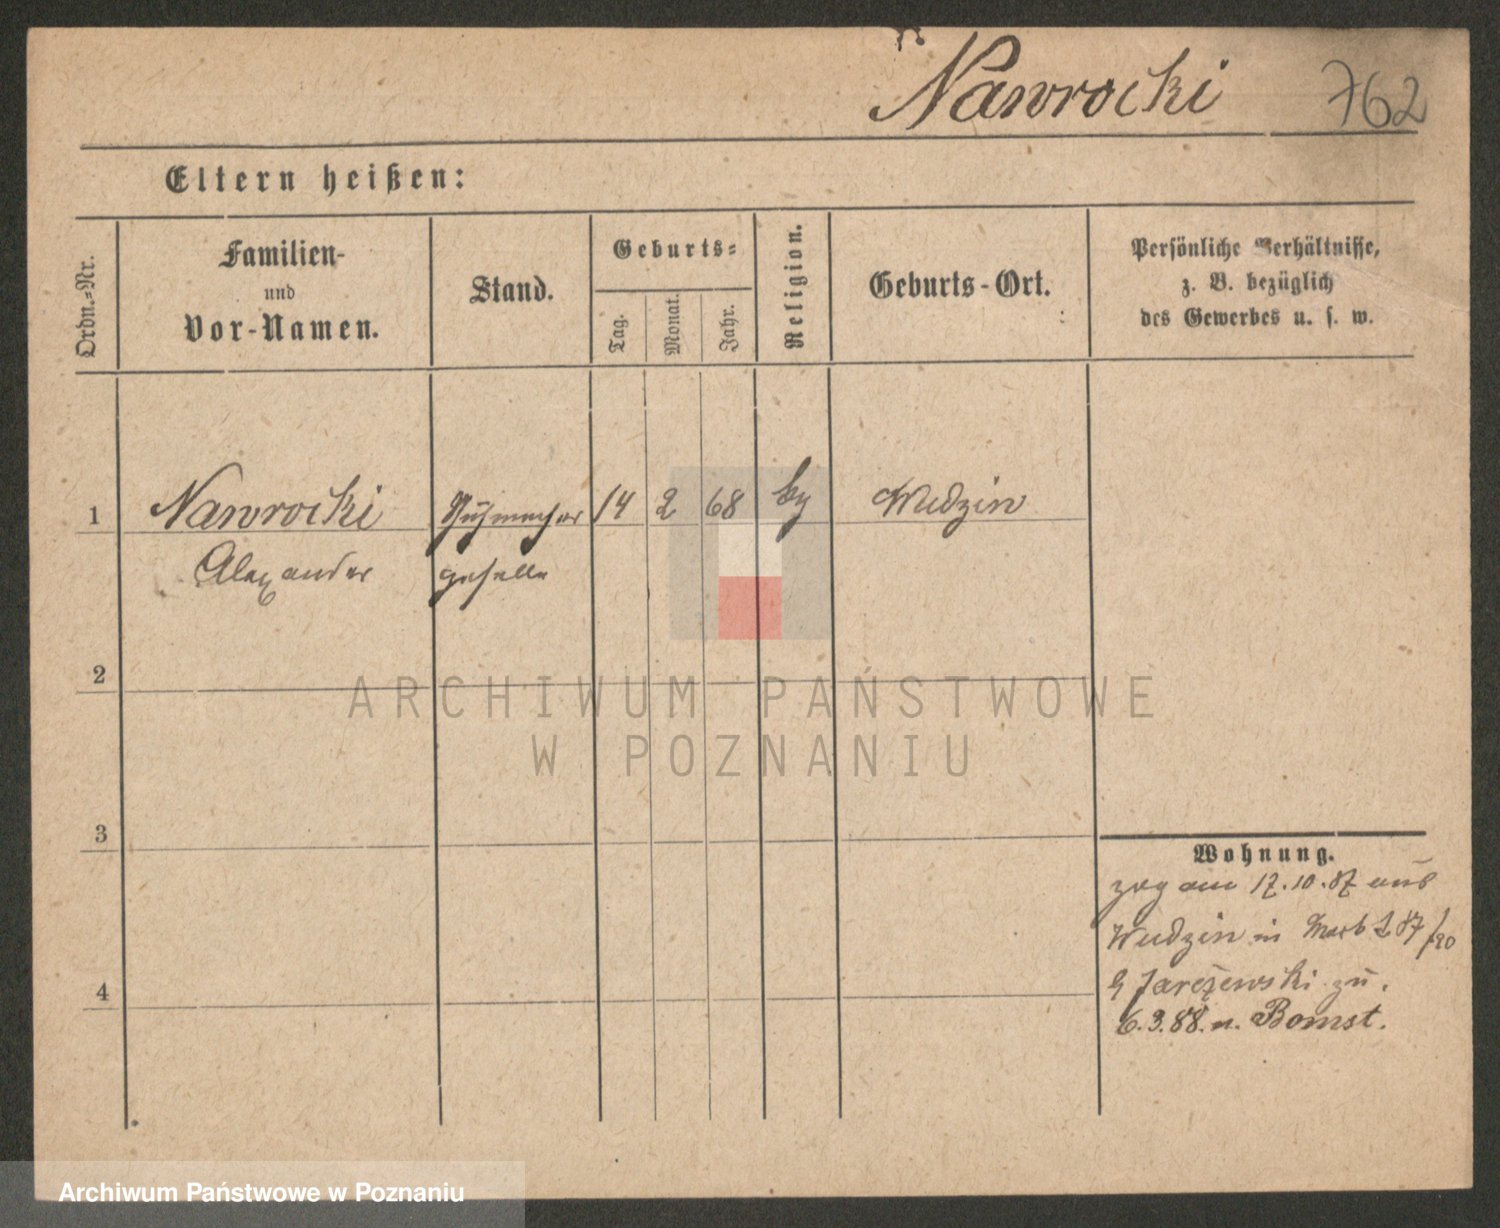 Nawrocki 762
Eltern heißen:
Ordn.=Nr.
Familien-
und
Vor-Namen.
Stand.
Geburts=
Tag.
Monat.
Jahr.
Religion.
Geburts-Ort.
Persönliche Verhältnisse,
z. B. bezüglich
des Gewerbes u. s. w.
1 Nawrocki 14 2 68 Wudzin
Alexander geselle
2
ARCHIWUM PAŃSTWOWE
W POZNANIU
3
Wohnung.
zog am 17.10.87 aus
Wudzin in 87/
4
Jareżewski zu.
6.3.88. n. Bomst.
Archiwum Państwowe w Poznaniu